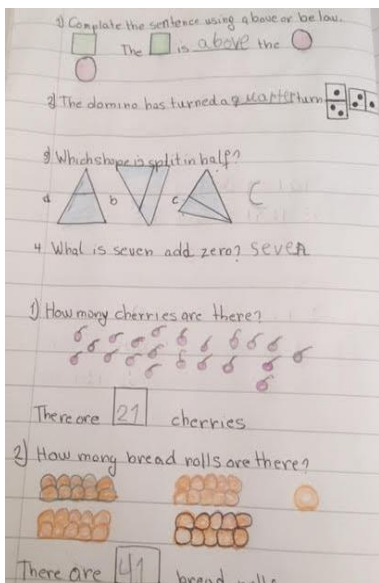 1) Complate the sentence using above or below.
The is above the
2) The domino has turned a quarter turn
3) Which shape is split in half?
a b c C
4 What is seven add zero? seven
1) How mony cherries are there?
There are 21 cherries
2) How mang bread rolls are there?
There are 41 bread rolls